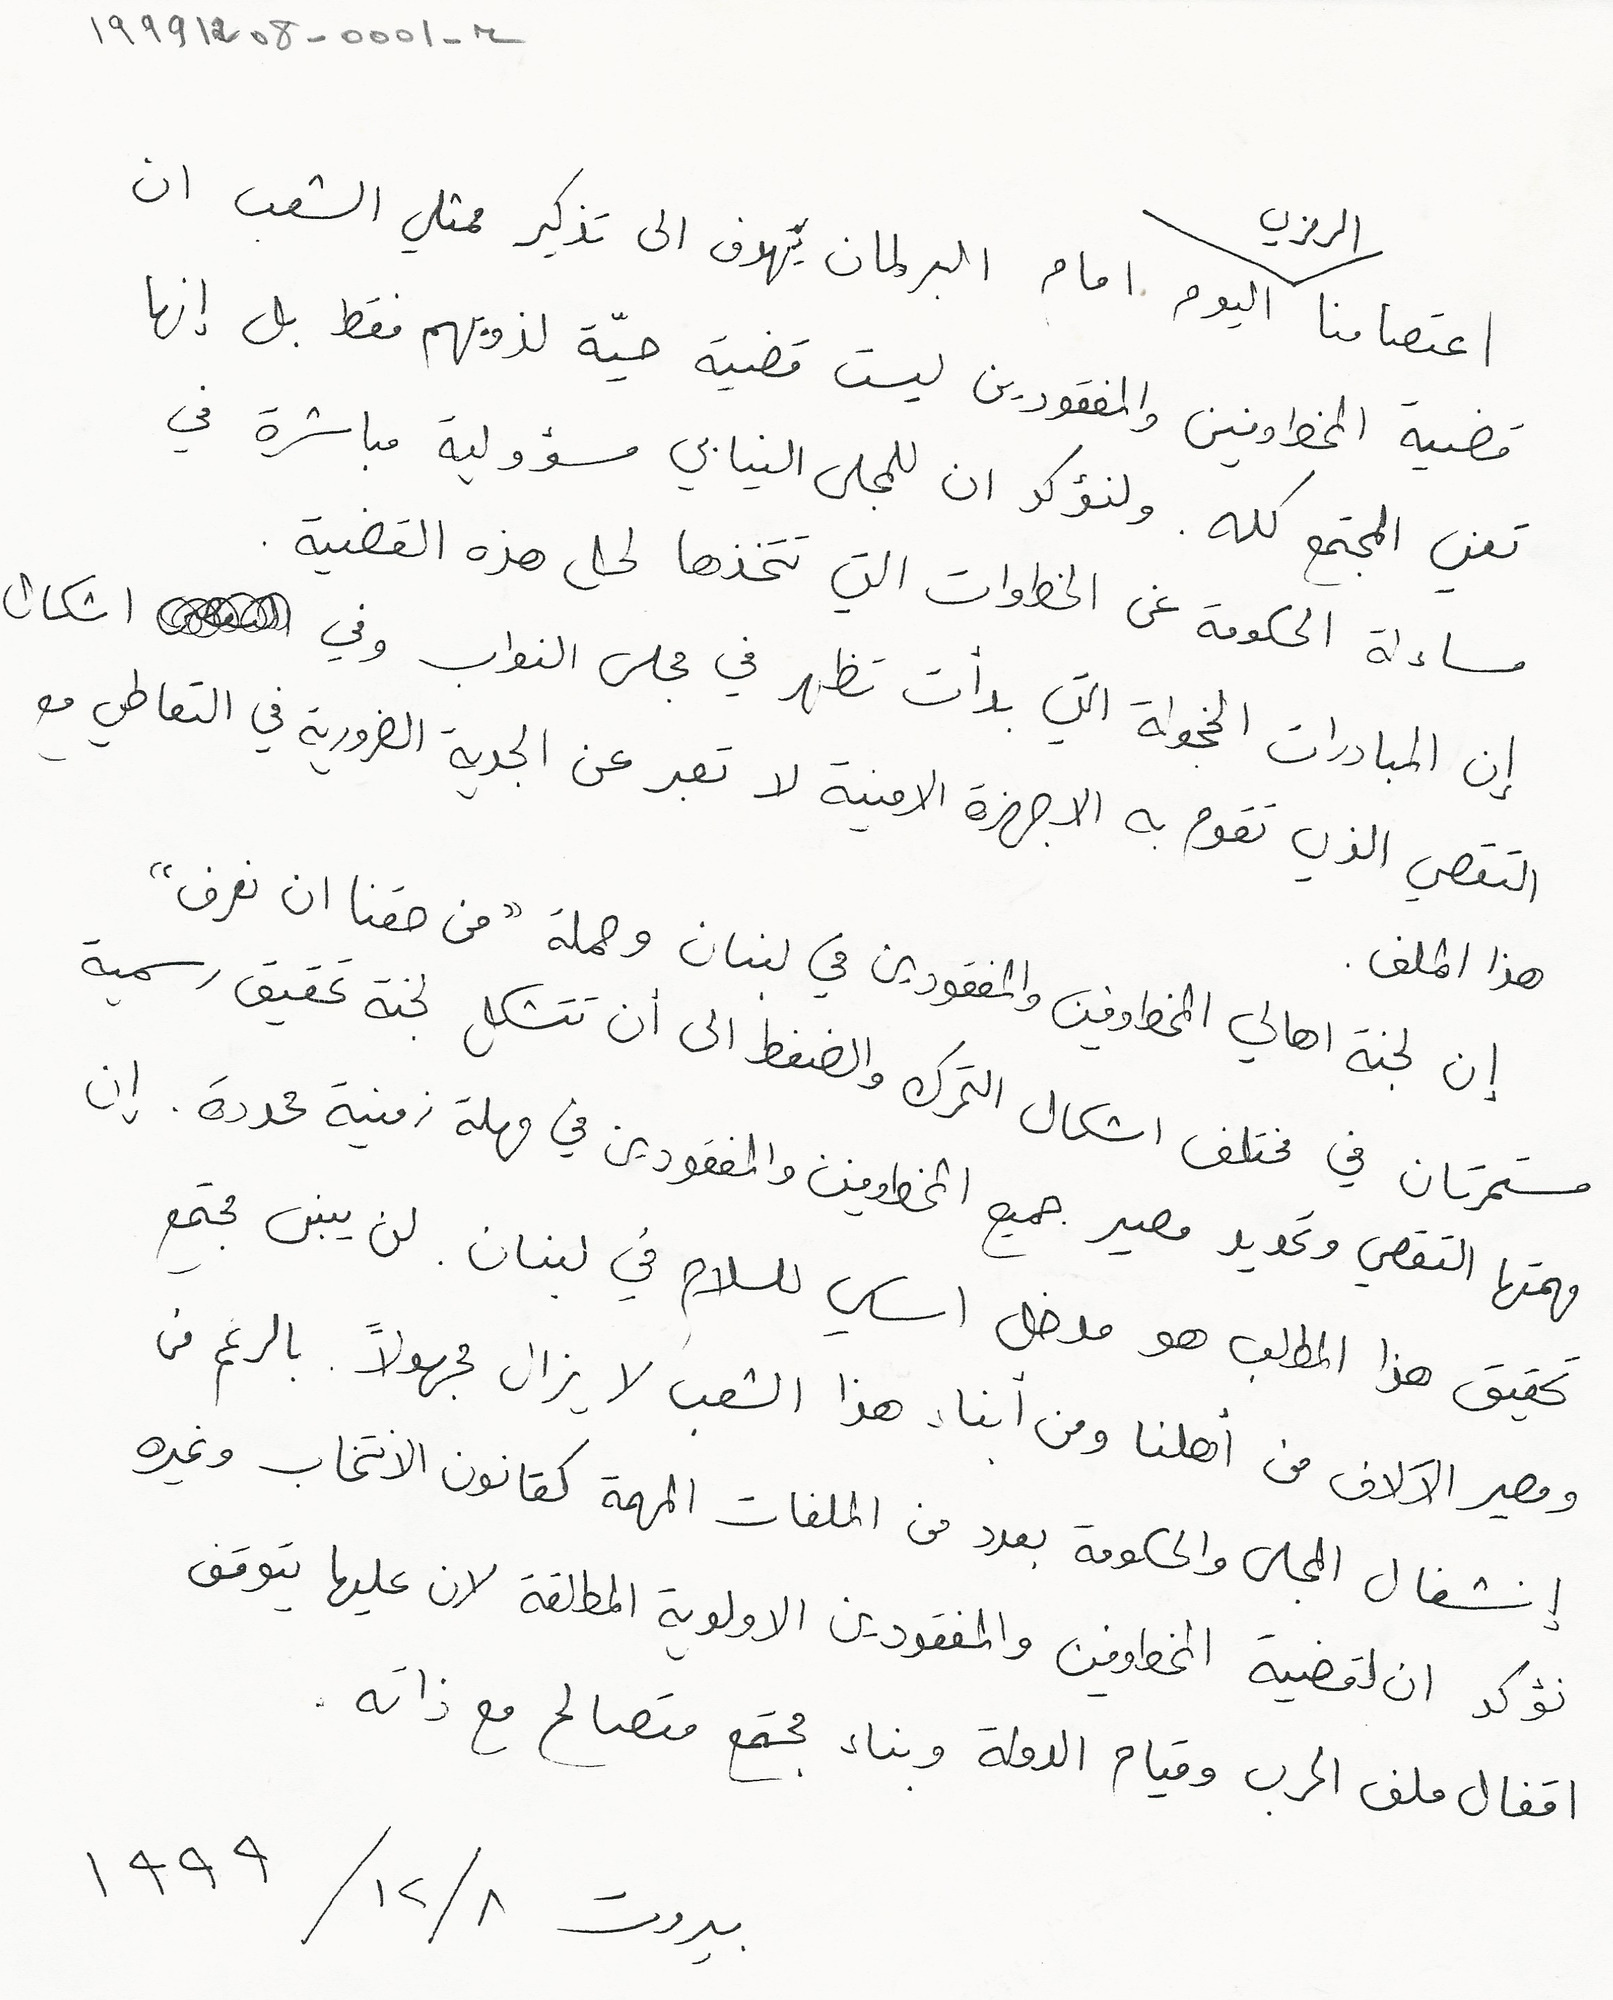 19991208-0001-M
الرمزي
اعتصامنا اليوم امام البرلمان يهدف الى تذكير ممثلي الشعب ان
قضية المخطوفين والمفقودين ليست قضية حيّة لذويهم فقط بل إنها
تعني المجتمع كله. ولنؤكد ان للمجلس النيابي مسؤولية مباشرة في
مساءلة الحكومة عن الخطوات التي تتخذها لحل هذه القضية.
إن المبادرات الخجولة التي بدأت تظهر في مجلس النواب وفي اشكال
التقصي الذي تقوم به الاجهزة الامنية لا تعبر عن الجدية الضرورية في التعاطي مع
هذا الملف.
إن لجنة اهالي المخطوفين والمفقودين في لبنان وحملة "من حقنا ان نعرف"
مستمرتان في مختلف اشكال التحرك والضغط الى أن تتشكل لجنة تحقيق رسمية
مهمتها التقصي وتحديد مصير جميع المخطوفين والمفقودين في مهلة زمنية محددة. إن
تحقيق هذا المطلب هو مدخل اساسي للسلام في لبنان. لن يبنى مجتمع
ومصير الآلاف من أهلنا ومن أبناء هذا الشعب لا يزال مجهولاً. بالرغم من
إنشغال المجلس والحكومة بعدد من الملفات المهمة كقانون الانتخاب وغيره
نؤكد ان لقضية المخطوفين والمفقودين الاولوية المطلقة لان عليها يتوقف
اقفال ملف الحرب وقيام الدولة وبناء مجتمع متصالح مع ذاته.
بيروت ٨/١٢/١٩٩٩